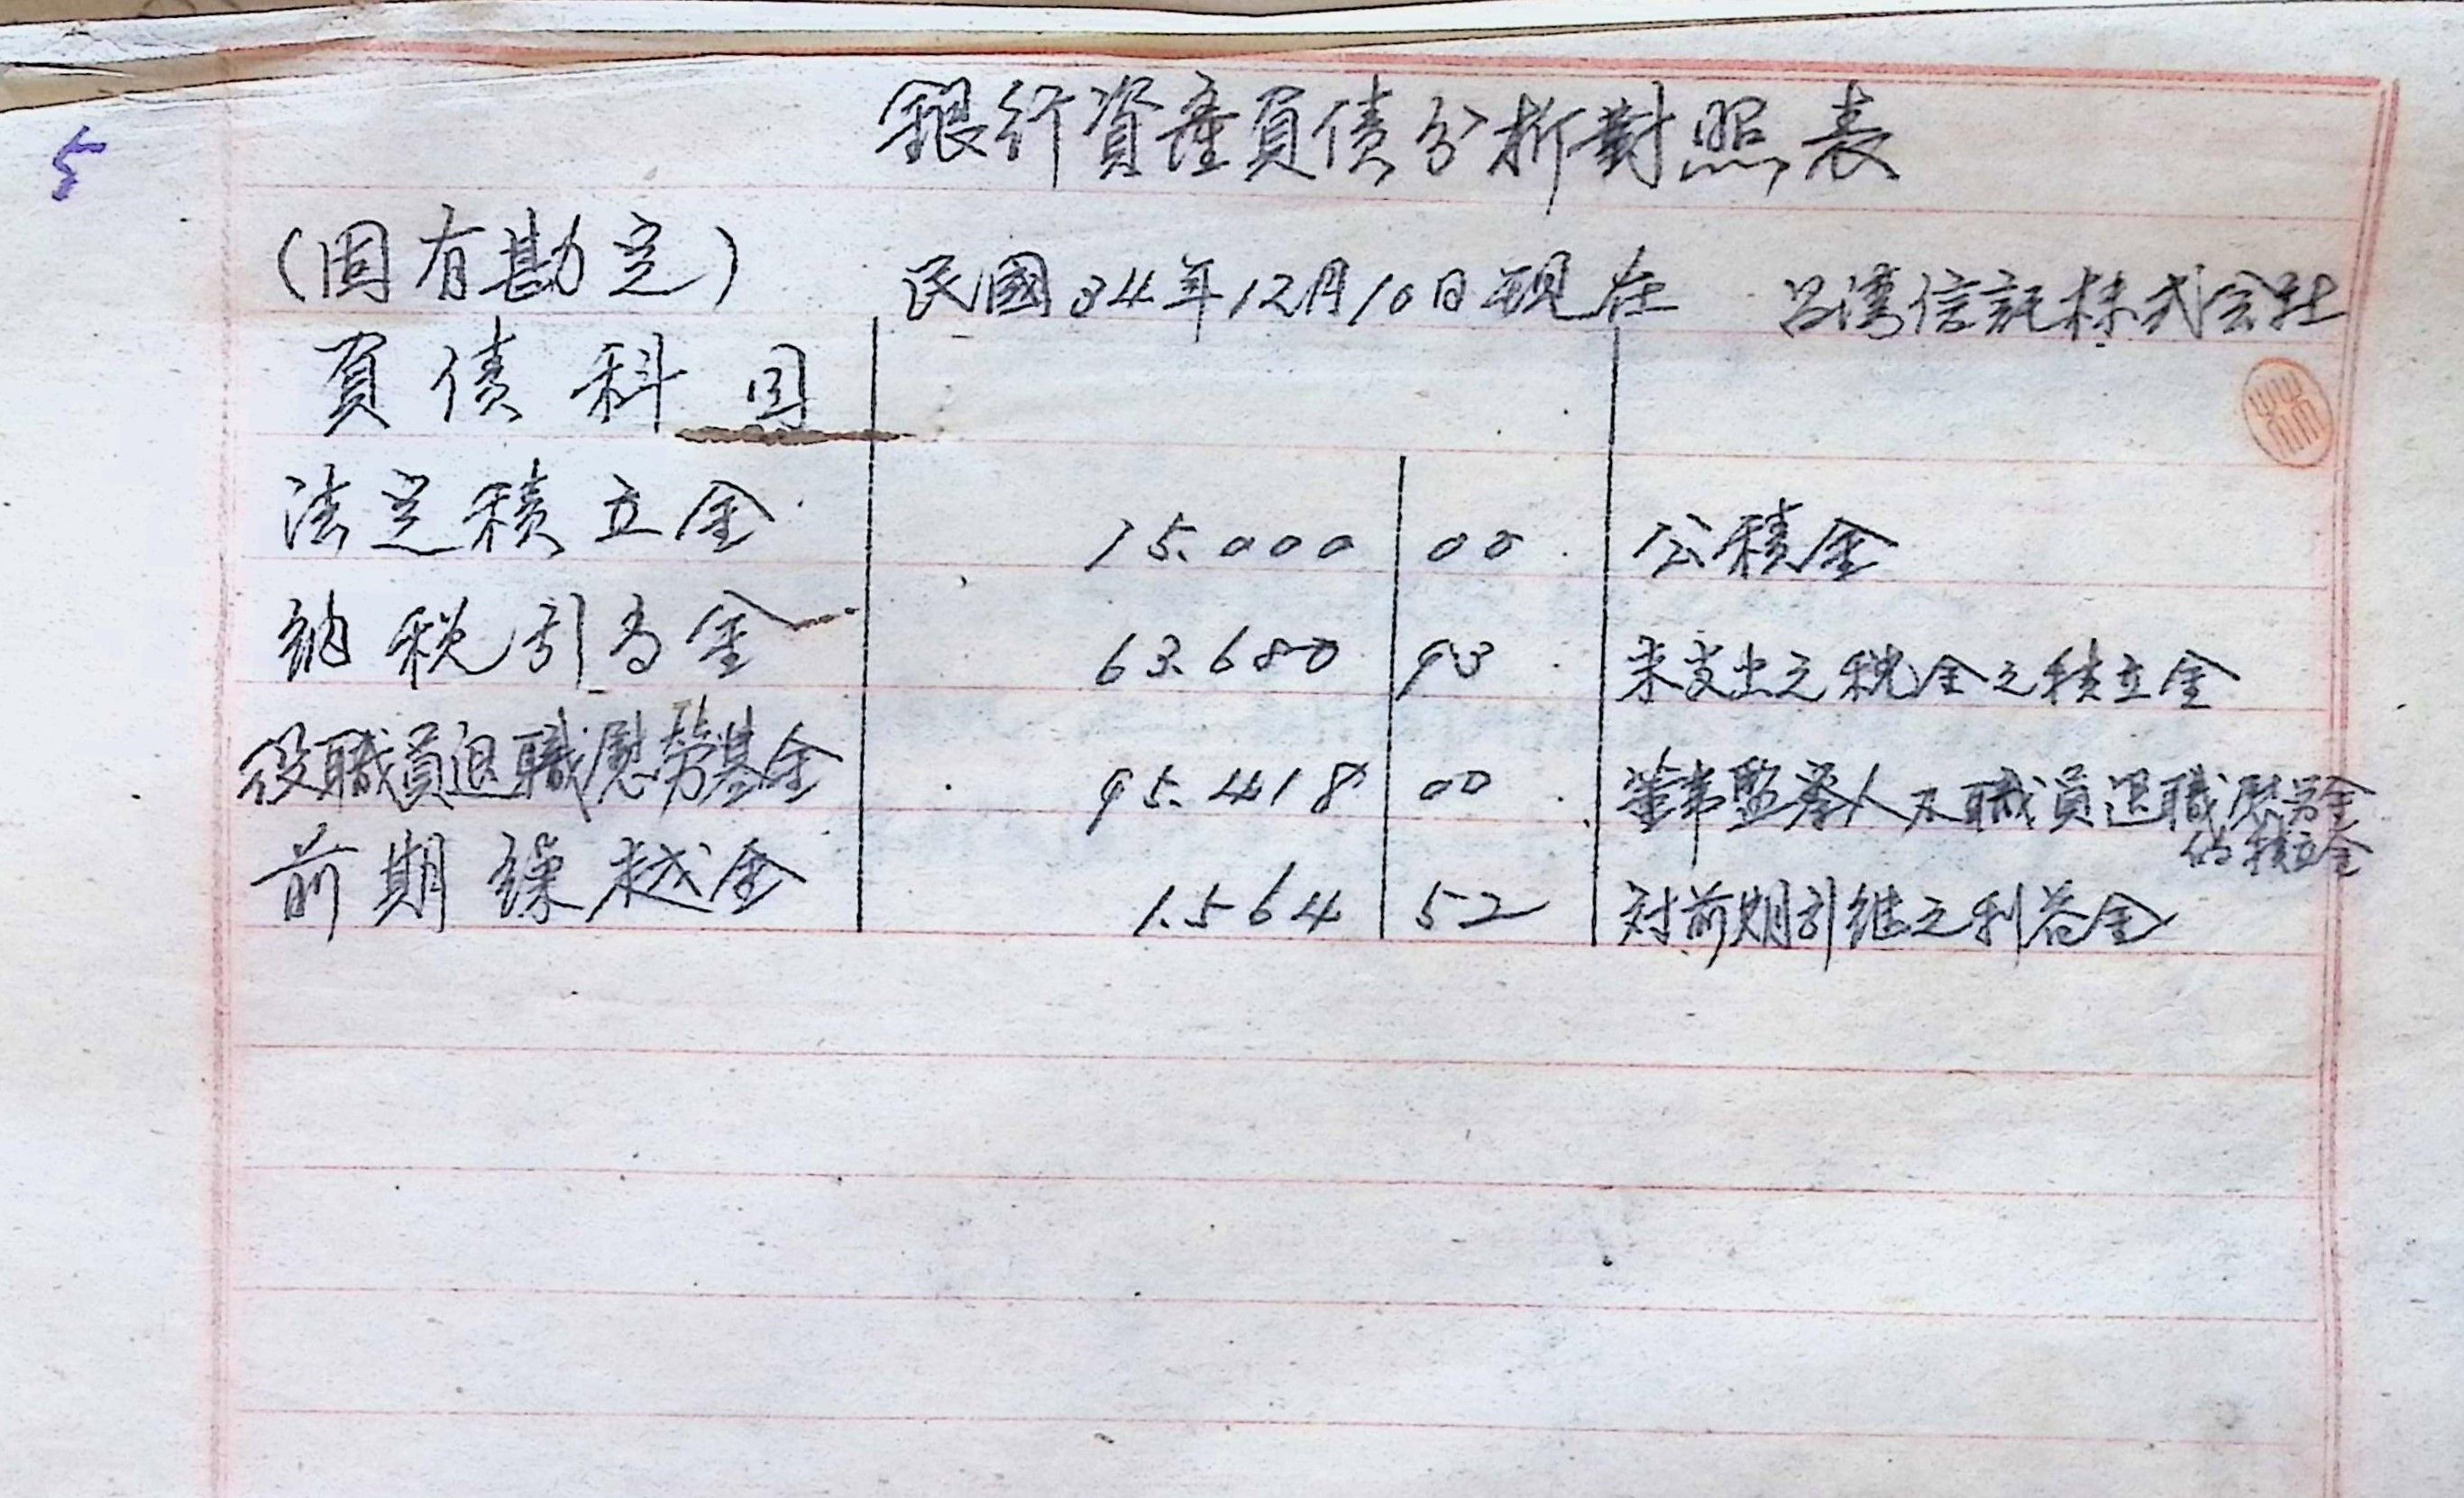 5
銀行資産負債分析對照表
(固有勘定) 民國34年12月10日現在 台湾信託株式会社
負債科目
法定積立金 15.000 00 公積金
納税引当金 63.680 93 未支出之税金之積立金
役職員退職慰労基金 95.418 00 董事監察人及職員退職慰労金
的積立金
前期繰越金 1.564 52 対前期引継之利益金